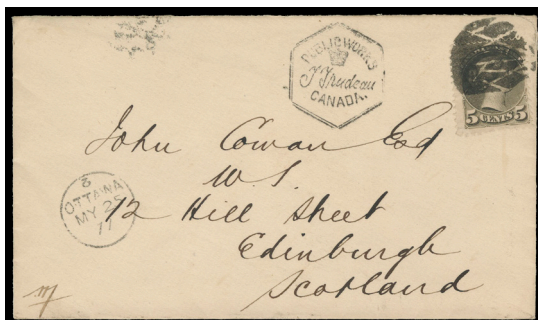 PUBLIC WORKS
T Trudeau
CANADA.
5 CENTS 5
John Cowan Esq
W.S.
92 Hill Street
Edinburgh
Scotland
OTTAWA
MY 2
77